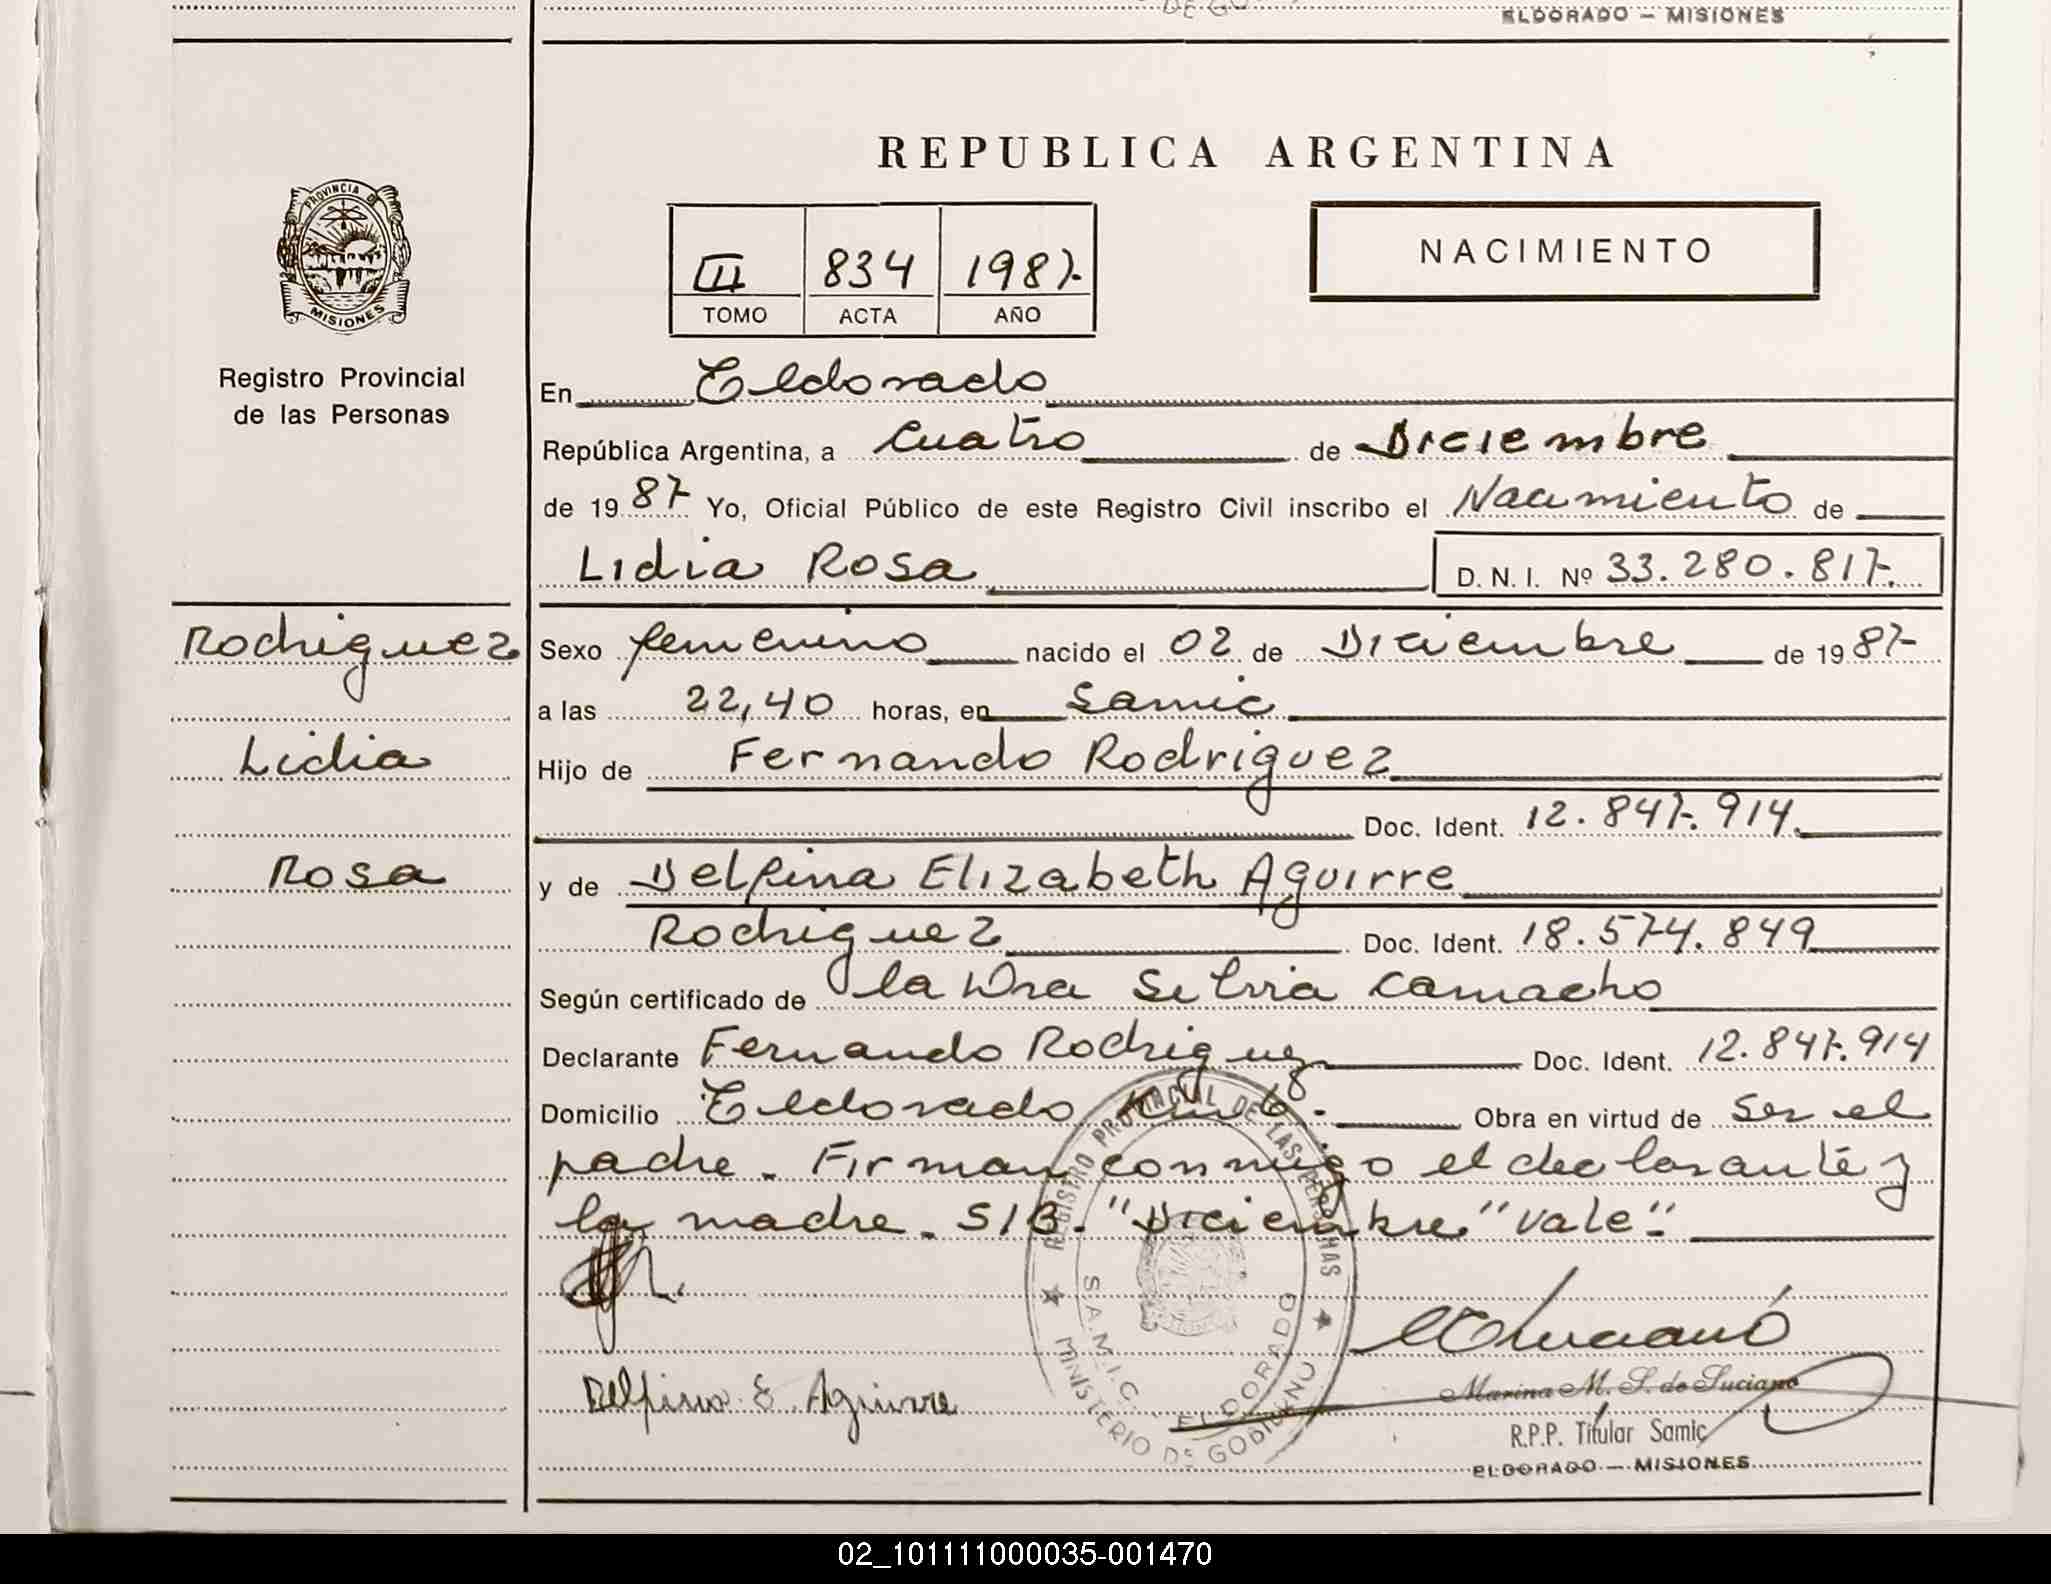 ELDORADO — MISIONES
REPUBLICA ARGENTINA
PROVINCIA DE
MISIONES
Registro Provincial
de las Personas
III 834 1987
TOMO ACTA AÑO
NACIMIENTO
En Eldorado
República Argentina, a cuatro de Diciembre
de 1987 Yo, Oficial Público de este Registro Civil inscribo el Nacimiento de
Lidia Rosa D. N. I. Nº 33.280.817.
Rodriguez
Lidia
Rosa
Sexo femenino nacido el 02 de Diciembre de 1987
a las 22,40 horas, en Samic
Hijo de Fernando Rodriguez
Doc. Ident. 12.847.914.
y de Delfina Elizabeth Aguirre
Rodriguez Doc. Ident. 18.574.849
Según certificado de la Dra Silvia Camacho
Declarante Fernando Rodriguez Doc. Ident. 12.847.914
Domicilio Eldorado Km 8.- Obra en virtud de ser el
padre. Firman conmigo el declarante y
la madre. S/B. "Diciembre" vale".-
REGISTRO PROVINCIAL DE LAS PERSONAS
S.A.M.I.C. ELDORADO
MINISTERIO DE GOBIERNO
Delfina E. Aguirre
Marina M. S. de Luciano
R.P.P. Titular Samic
ELDORADO — MISIONES
02_101111000035-001470